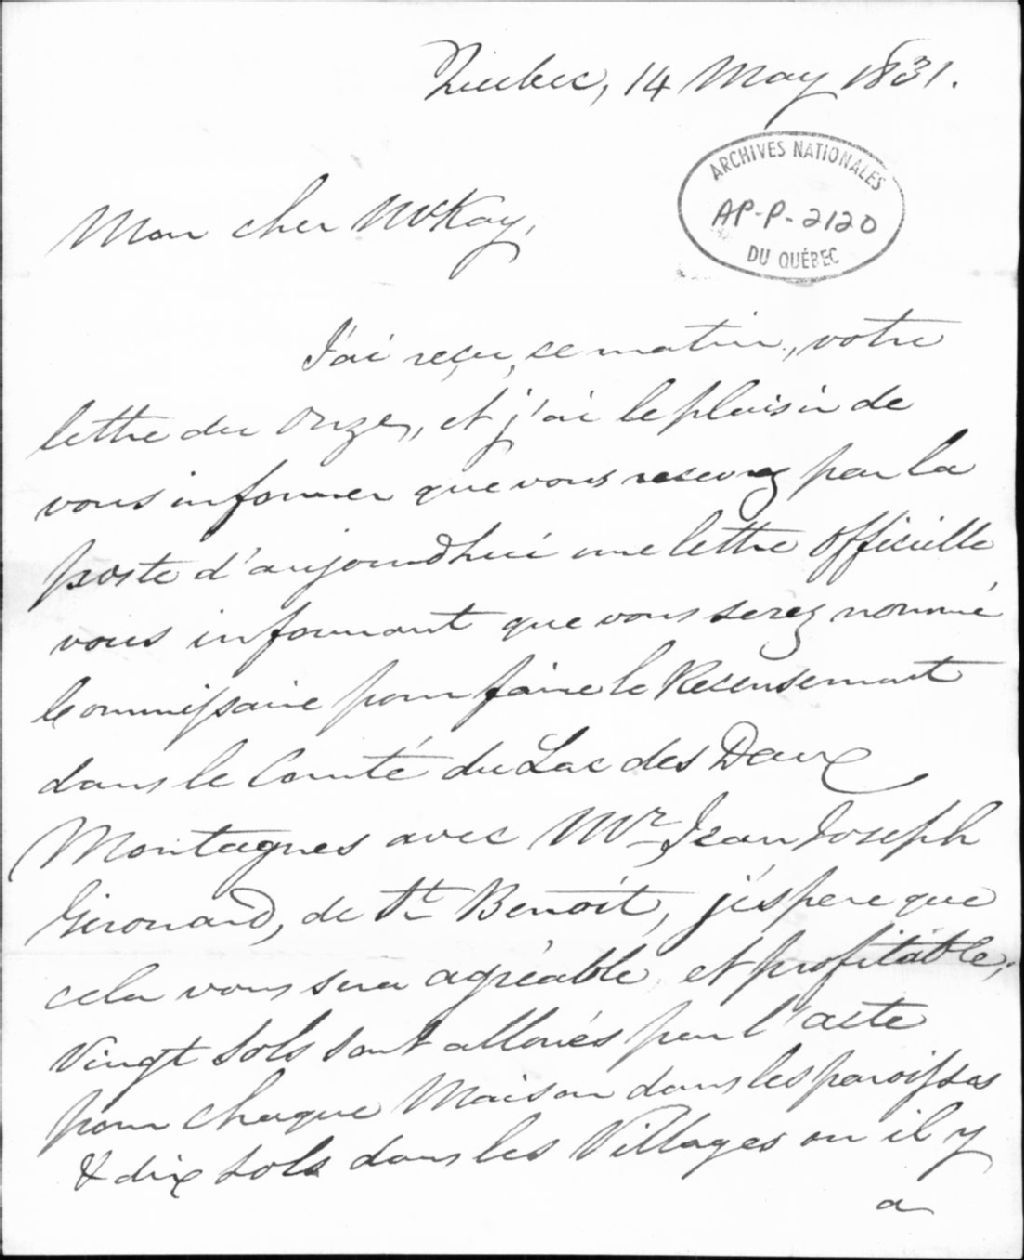 Quebec, 14 May 1831.
ARCHIVES NATIONALES
AP-P-2120
DU QUÉBEC
Mon cher McKay,
J'ai reçu, ce matin, votre
lettre du Onze, et j'ai le plaisir de
vous informer que vous recevrez par la
poste d'aujourdhui une lettre Officielle
vous informant que vous serez nommé
Commissaire pour faire le Recensement
dans le Comté du Lac des Deux
Montagnes avec Mr Jean Joseph
Girouard, de St Benoit, j'éspere que
cela vous sera agréable, et profitable;
Vingt Sols sont alloués par l'acte
pour chaque Maison dans les paroisses
& dix Sols dans les Villages ou il y
a